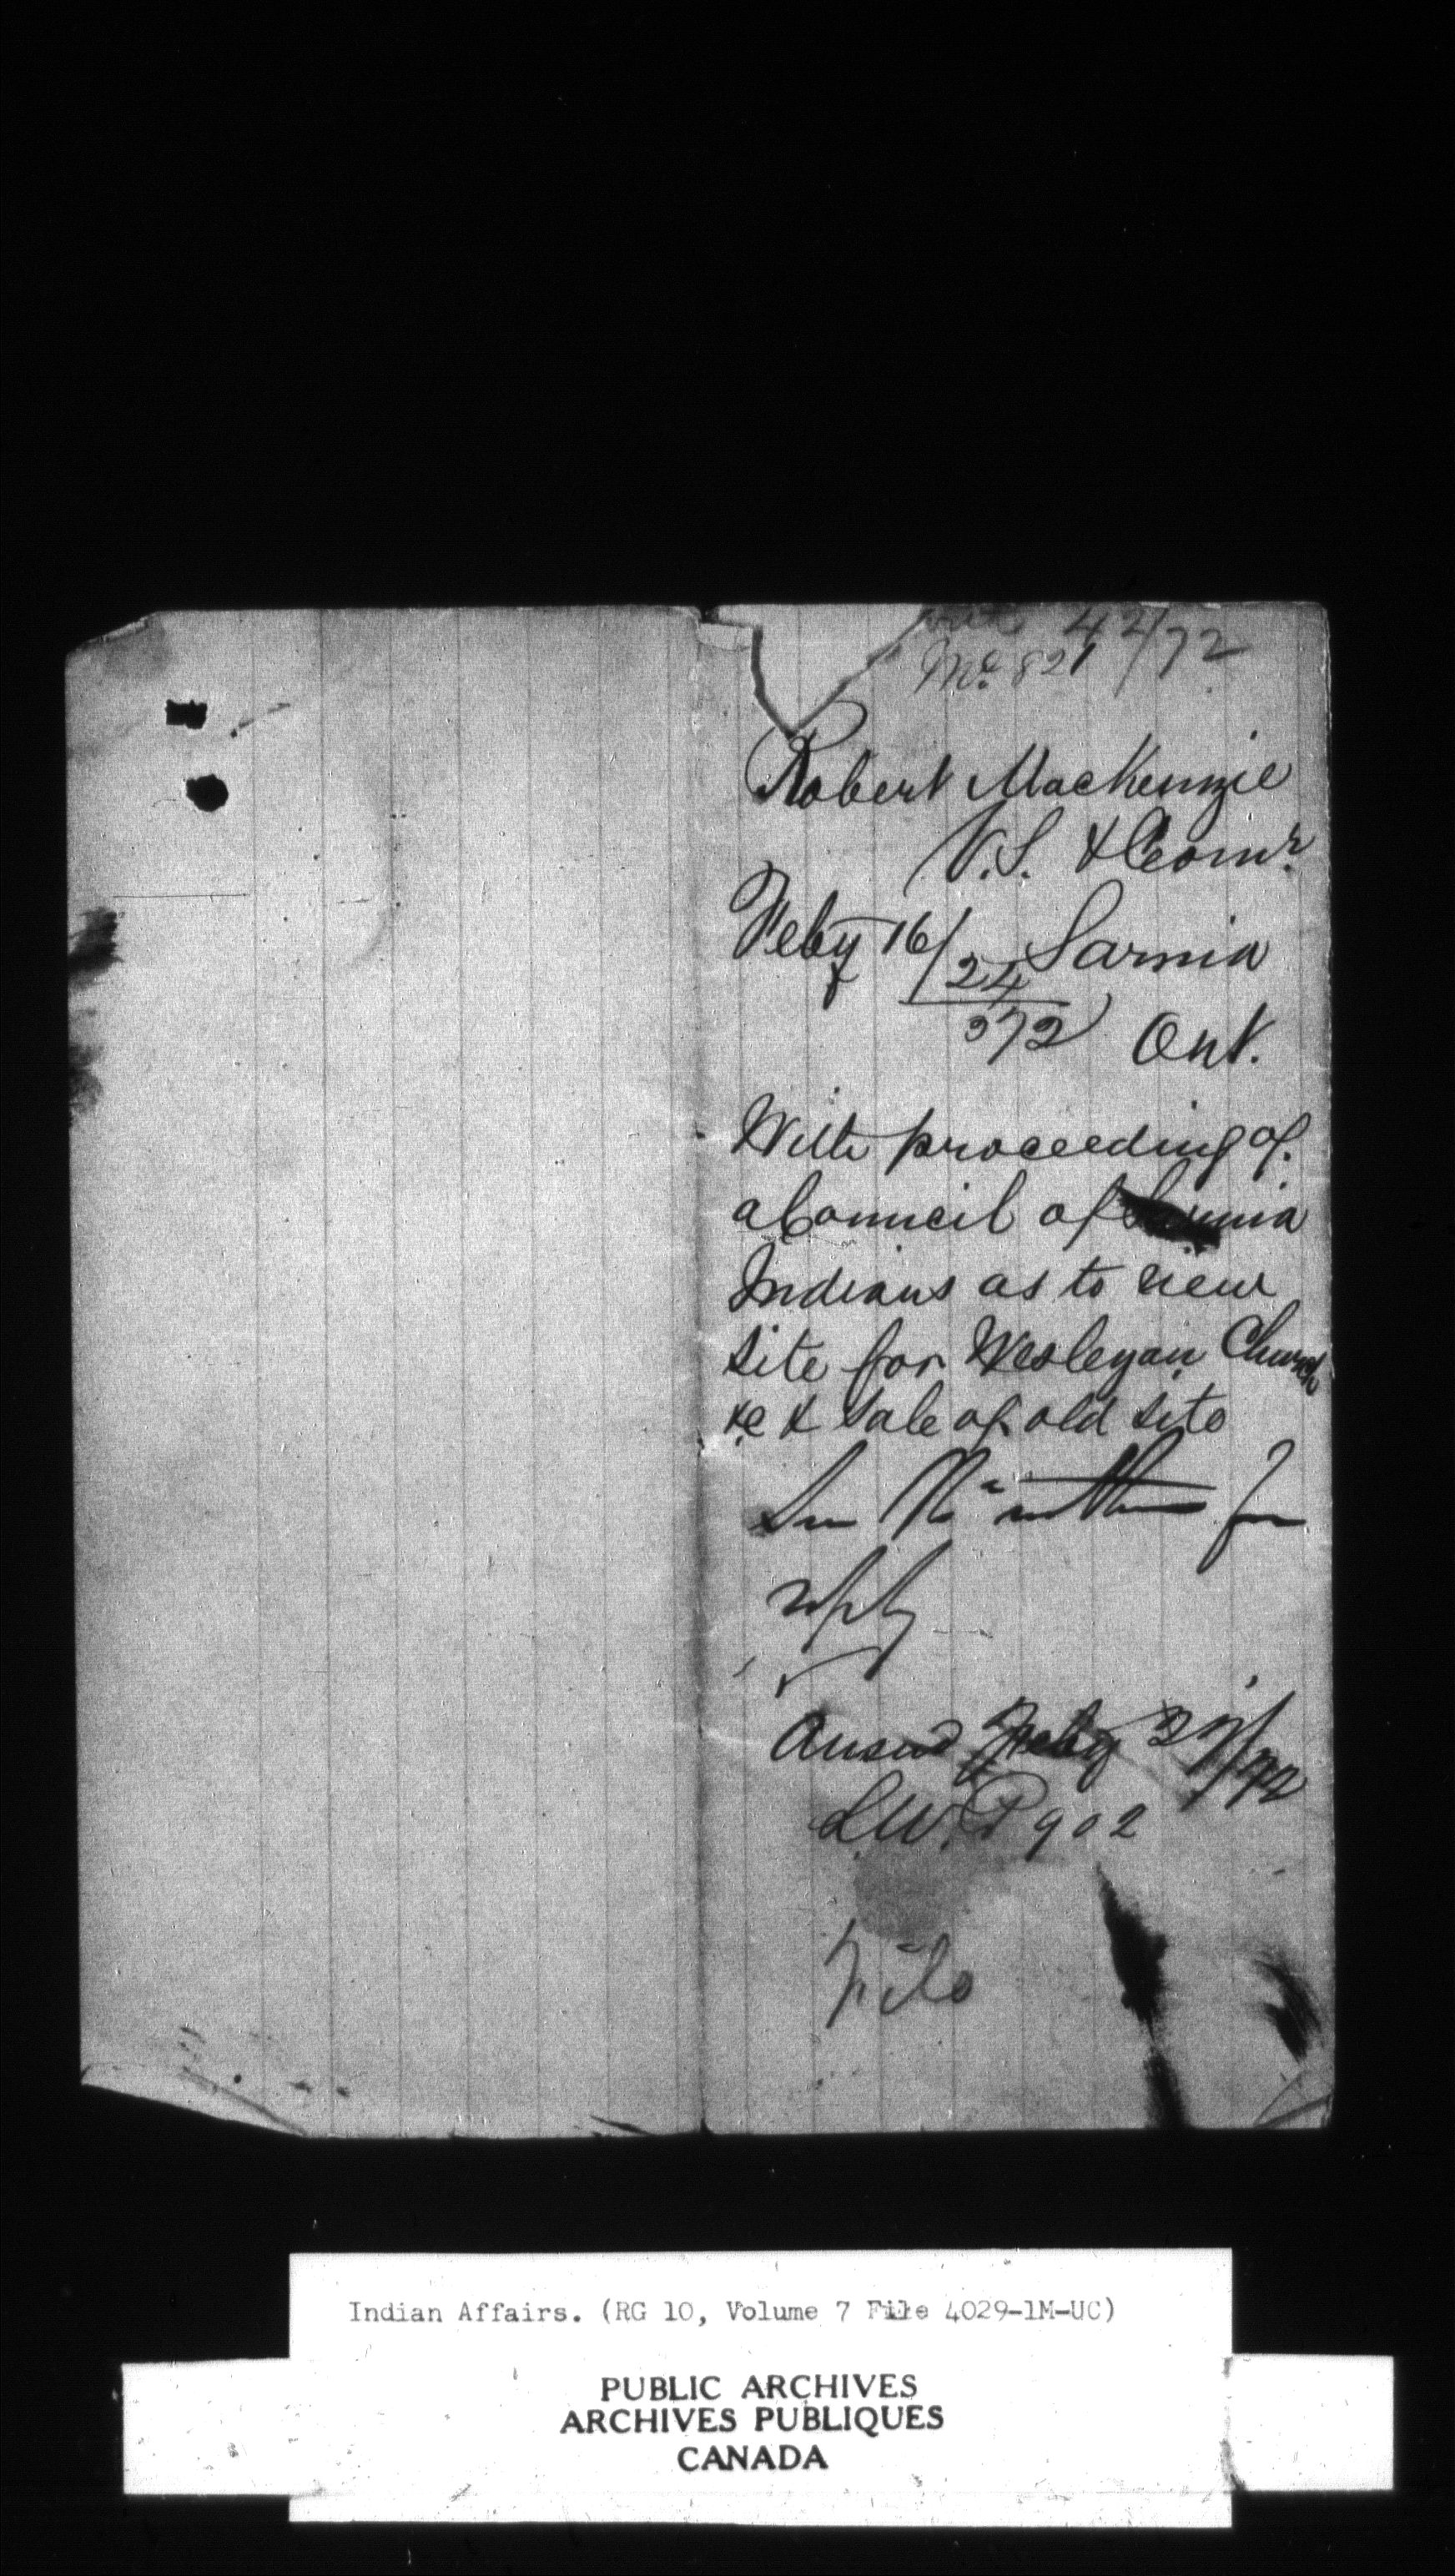 42/72
No. 821
Robert MacKenzie
V.S. & Comr.
Feby 16/24 Sarnia
372 Ont.
With proceeding of
a Council of Sarnia
Indians as to new
site for Wesleyan Church
&c & sale of old site
See within for
reply
Ansd Feby 27/72
L.W. P 902
File
Indian Affairs. (RG 10, Volume 7 File 4029-1M-UC)
PUBLIC ARCHIVES
ARCHIVES PUBLIQUES
CANADA